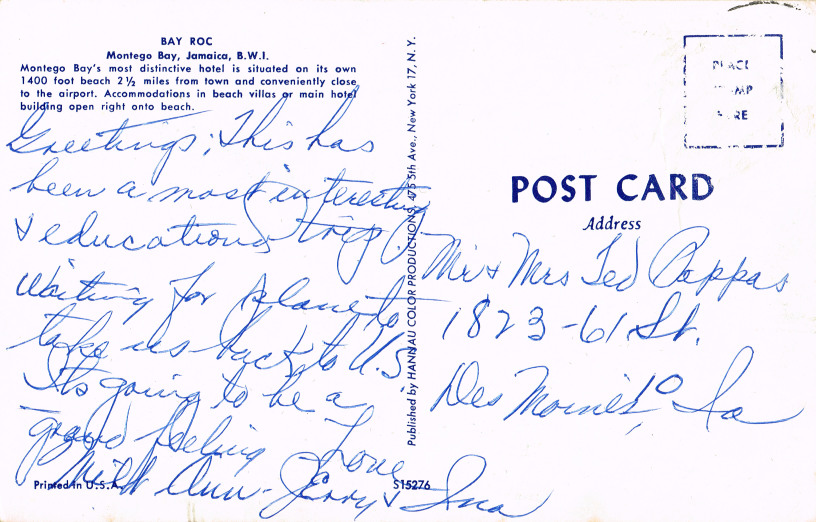 BAY ROC
Montego Bay, Jamaica, B.W.I.
Montego Bay's most distinctive hotel is situated on its own
1400 foot beach 2½ miles from town and conveniently close
to the airport. Accommodations in beach villas or main hotel
building open right onto beach.
Greetings; This has
been a most interesting
& educational trip.
Waiting for plane to
take us back to U.S.
Its going to be a
grand feeling
Love
Milt Ann - Jerry & Ina
Printed in U.S.A.
S15276
Published by HANNAU COLOR PRODUCTIONS, 475 5th Ave., New York 17, N. Y.
PLACE
STAMP
HERE
POST CARD
Address
Mr & Mrs Ted Pappas
1823-61 St.
Des Moines, 10 Ia